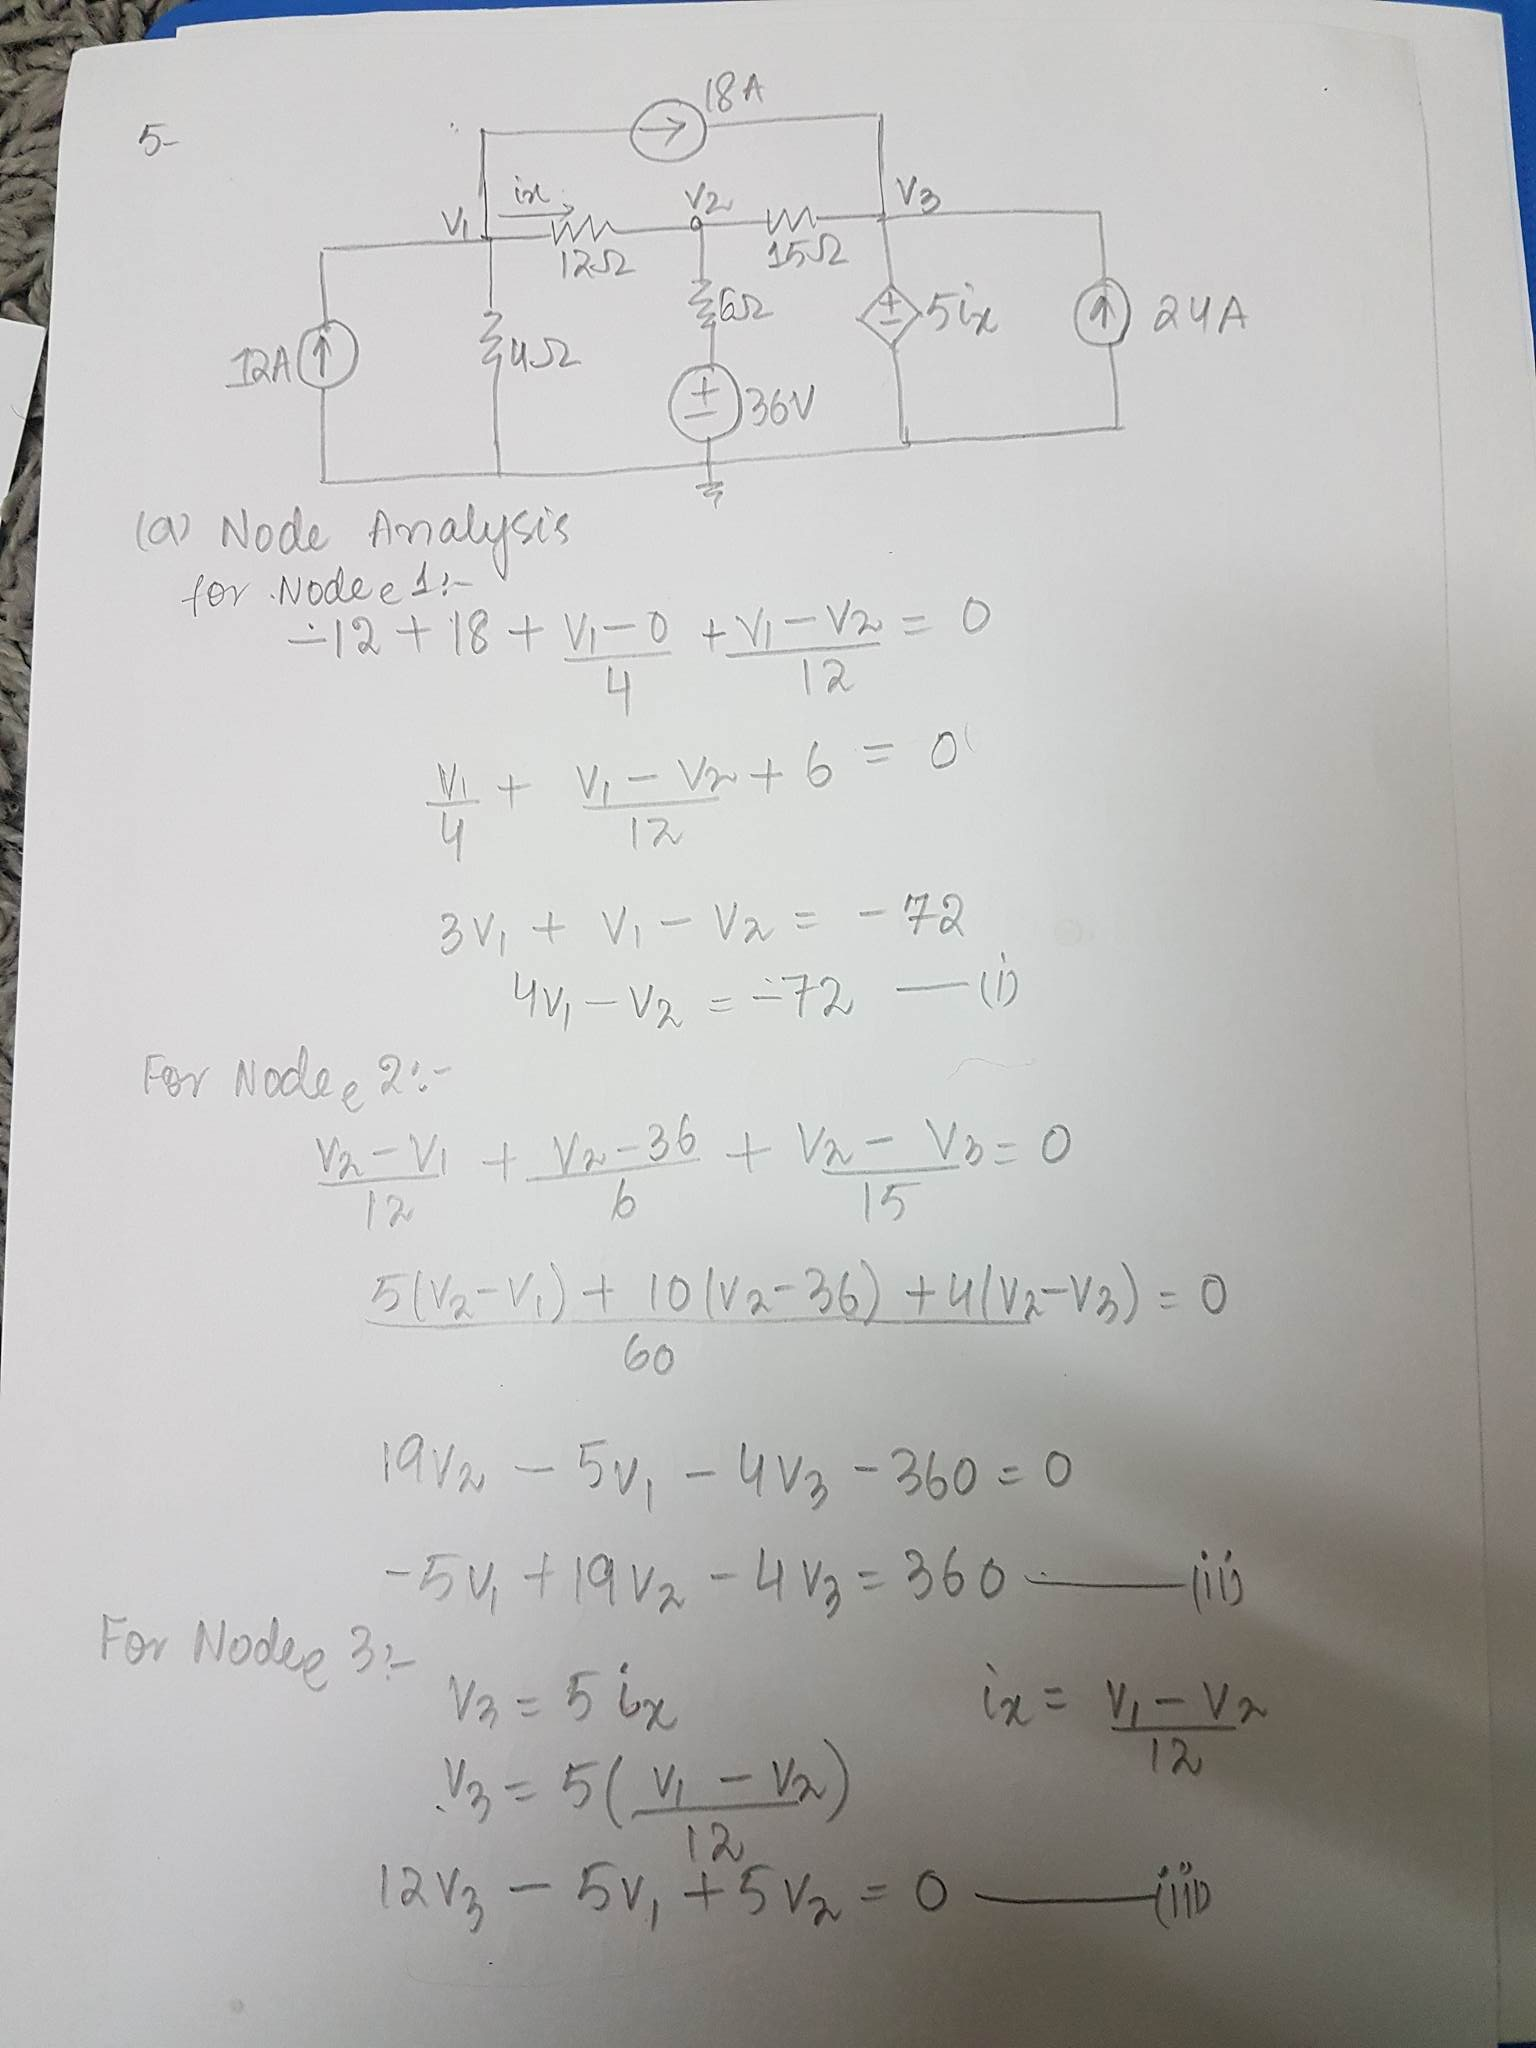 5-
18A
ix
V1
V2
V3
12Ω
15Ω
6Ω
5ix
24A
12A
4Ω
36V
(a) Node Analysis
for Nodee 1:-
-12 + 18 + (V1-0)/4 + (V1-V2)/12 = 0
V1/4 + (V1-V2)/12 + 6 = 0
3V1 + V1 - V2 = -72
4V1 - V2 = -72 — (i)
For Nodee 2:-
(V2-V1)/12 + (V2-36)/6 + (V2-V3)/15 = 0
(5(V2-V1) + 10(V2-36) + 4(V2-V3))/60 = 0
19V2 - 5V1 - 4V3 - 360 = 0
-5V1 + 19V2 - 4V3 = 360 — (ii)
For Nodee 3:-
V3 = 5ix ix = (V1-V2)/12
V3 = 5((V1-V2)/12)
12V3 - 5V1 + 5V2 = 0 — (iii)